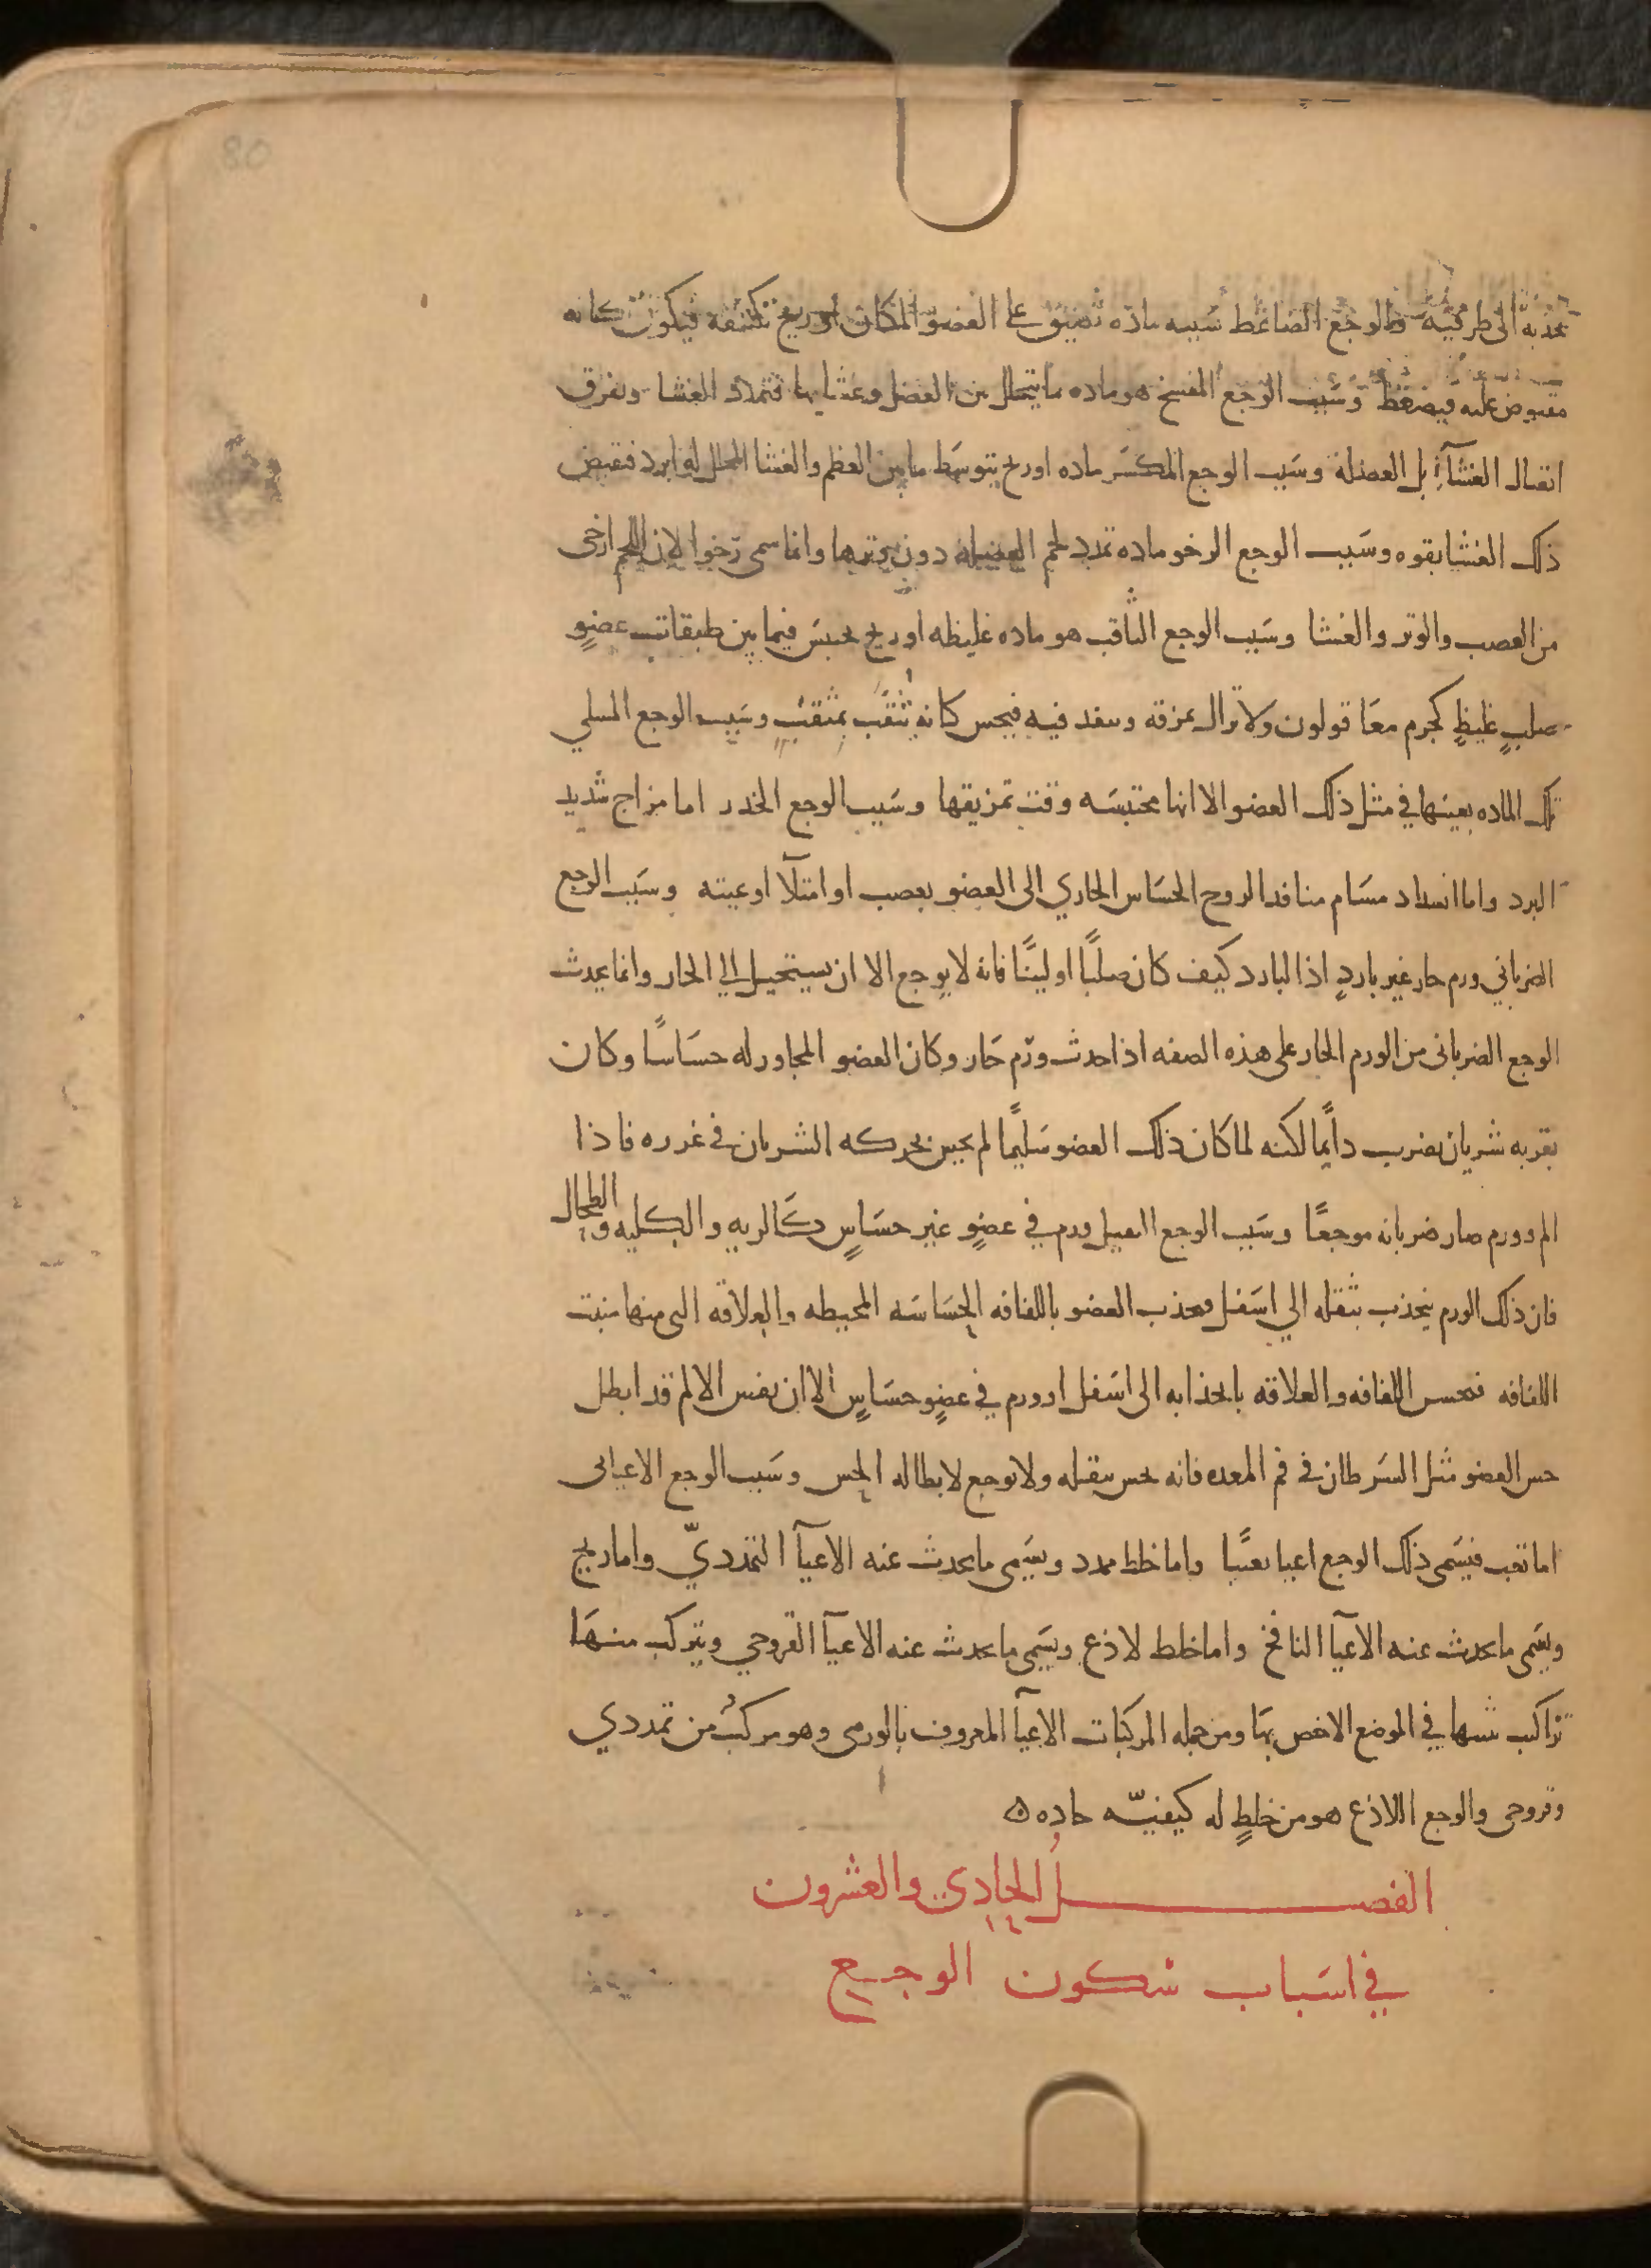 80
تجذبه الى طرفيه والوجع الضاغط سَببه ماده تضيق على العضو المكان او ريح تكتنفه فيكون كانه
مقبوض عليه فيضغط وسَبب الوجع المفسخ هو ماده ما يتحلل بين العضل وغشايها فتمدد الغشا ويفرق
اتصال الغشآء بل العضلة وسَبب الوجع المكسَر ماده او ريح يتوسَط ما بين العظم والغشا المجلل له او برد فيقبض
ذلك الغشا بقوه وسَبب الوجع الرخو ماده تمدد لحم العضله دون وترها وانما سمي رَخوا لان اللحم ارخى
من العصب والوتر والغشا وسَبب الوجع الثاقب هو ماده غليظه او ريح تحبسَ فيما بين طبقات عضوٍ
صلبٍ غليظٍ كجرم معَا قولون ولا تزال تمزقه وينفد فيه فيحس كانه يُثقَب بمثقبٍ وسَبب الوجع المسلي
تلك الماده بعينها في مثل ذلك العضو الا انها محتبسَه وقت تمزيقها وسَبب الوجع الخدر اما مزاج شديد
البرد واما انسداد مسَام منافد الروح الحسَاس الجاري الى العضو بعصب او امتلآ اوعيته وسَبب الوجع
الضرباني ورم حار غير باردٍ اذ البارد كيف كان صلبًا او لينًا فانه لا يوجع الا ان يستحيل الي الحار وانما يحدث
الوجع الضرباني من الورم الحار على هذه الصفه اذا حدث ورَم حَار وكان العضو المجاور له حسَاسًا وكان
بقربه شريان يضرب دايمًا لكنه لما كان ذلك العضو سَليمًا لم يحس بحركه الشريان في غوره فاذا
الم وورم صار ضربانه موجعًا وسَبب الوجع الثقيل ورم في عضوٍ غير حسَاسٍ كَالريه والكليه والطحال
فان ذلك الورم ينجذب بثقله الي اسَفل فيجذب العضو باللفافه الحسَاسَه المحيطه والعلاقه التي منها منبت
اللفافه فتحس اللفافه والعلاقه بانجذابه الى اسَفل او ورم في عضوٍ حسَاسٍ الا ان نفس الالم قد ابطل
حس العضو مثل السَرطان في فم المعده فانه يحس بثقله ولا يوجع لابطاله الحس وسَبب الوجع الاعيائي
اما تعب فيسَمى ذلك الوجع اعيا تعبيًا واما خلط ممدد ويسَمى ما يحدث عنه الاعيآ التمدديّ واما ريح
ويسَمى ما يحدث عنه الاعيآ النافخ واما خلط لاذع ويسَمى ما يحدث عنه الاعيآ القروحي ويتركب منهَا
تراكب نبينها في الموضع الاخص بهَا ومن جمله المركبات الاعيآ المعروف بالورمي وهو مركبٌ من تمددي
وقروحي والوجع اللاذع هو من خلطٍ له كيفيّه حاده
الفصل الحادي والعشرون
في اسَباب سَكون الوجع